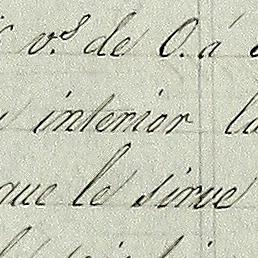 v.s de O. á
interior la
que le sirve